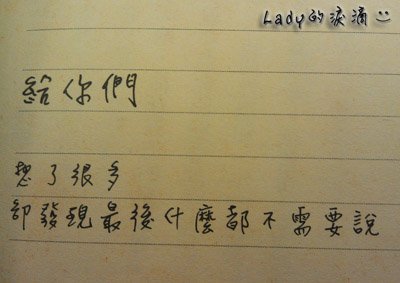 Lady的淚滴
給你們
想了很多
卻發現最後什麼都不需要說